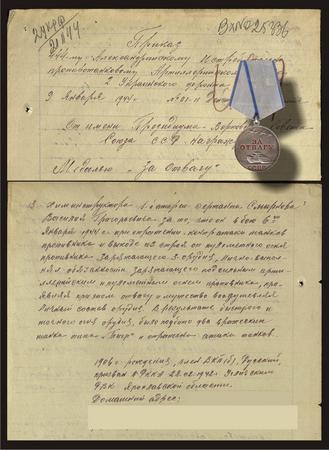 Вх№25336
24кро
21844
Приказ
444-му Александрийскому Истребительно
противотанковому Артиллерийскому
2 Украинского фронта
9 Января 1944 г. № 01-н
От имени Президиума Верховного Совета
Союза ССР награждаю
Медалью "За Отвагу"
ЗА
ОТВАГУ
СССР
13. Химинструктора 1 батареи сержанта Смирнова
Василия Григорьевича за то, что он в бою 6го
Января 1944 г при отражении контратаки танков
противника и выходе из строя от пулеметного огня
противника заряжающего 3 орудия, лично выпол-
нял обязанности заряжающего под сильным артил-
лерийским и пулеметным огнем противника, про-
являя при этом отвагу и мужество воодушевляя
личный состав орудия. В результате быстрого и
точного огня орудия, было подбито два вражеских
танка типа "Тигр" и отражена атака танков.
1906 г. рождения, член ВКП(б), Русский,
призван в РККА 28.02.1942 г. Угличским
РВК Ярославской области.
Домашний адрес: